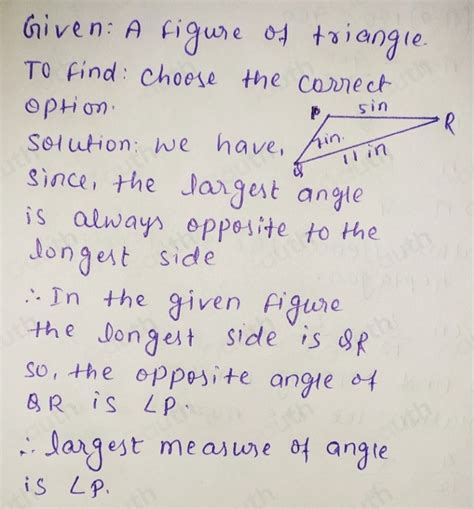 Given: A figure of triangle.
To find: choose the correct
option.
P 5in R
Solution: we have, 7in.
Q 11 in
Since, the largest angle
is always opposite to the
longest side
∴ In the given figure
the longest side is QR
so, the opposite angle of
QR is ∠P.
∴ largest measure of angle
is ∠P.